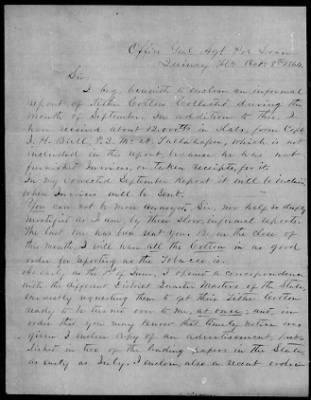 Office Genl Agt P
Quincy Fla Octr 8th 1864
Sir,
I beg herewith to enclose an informal
report of Tithe Cotton Collected during the
month of September. In addition to this, I
have received about 12.000 lbs in Slabs, from Capt
J. H. Bird P. 2 Mr at Tallahassee, which is not
included in this report, because he was not
furnished Invoices, or taken receipts, for it.
In my corrected September Report it will be included,
when Invoices will be sent.
You can not be more annoyed, Sir, nor half so deeply
mortified as I am, by these slow, informal reports.
The last one has been sent you. By or the close of
this month, I will have all the Cotton in as good
order for reporting as the Tobacco is.
As early as the 1st of June, I opened a correspondence
with the different District Quarter Masters of the State,
earnestly requesting them to get their Tithe Cotton
ready to be turned over to me, at once; and, in
order that you may know that timely notice was
given I enclose copy of an advertisement, pub-
lished in two of the leading papers in the State,
as early as July. I enclose also a recent